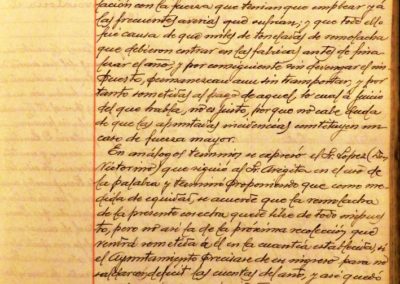 lación con la fuerza que tenían que emplear y á
las frecuentes averías que sufrían; y que todo ello
fué causa de que miles de toneladas de remolacha
que debieron entrar en las fábricas antes de fina-
lizar el año, y por consiguiente sin devengar el im-
puesto, permanezcan aun sin transportar, y por
tanto sometidas al pago de aquel, lo cual á juicio
del que habla, no es justo, porque no cabe duda
de que las apuntadas incidencias constituyen un
caso de fuerza mayor.
En análogos términos se expresó el Sr. Lopez (Don
Victorino) que siguió al Sr. en el uso de
la palabra y terminó proponiendo que como me-
dida de equidad, se acuerde que la remolacha
de la presente cosecha quede libre de todo impues-
to, pero no así la de la próxima recolección que
vendrá sometida á él en la cuantía establecida, si
el Ayuntamiento precisase de su ingreso para no
saldar con déficit las cuentas del año, y así quedó